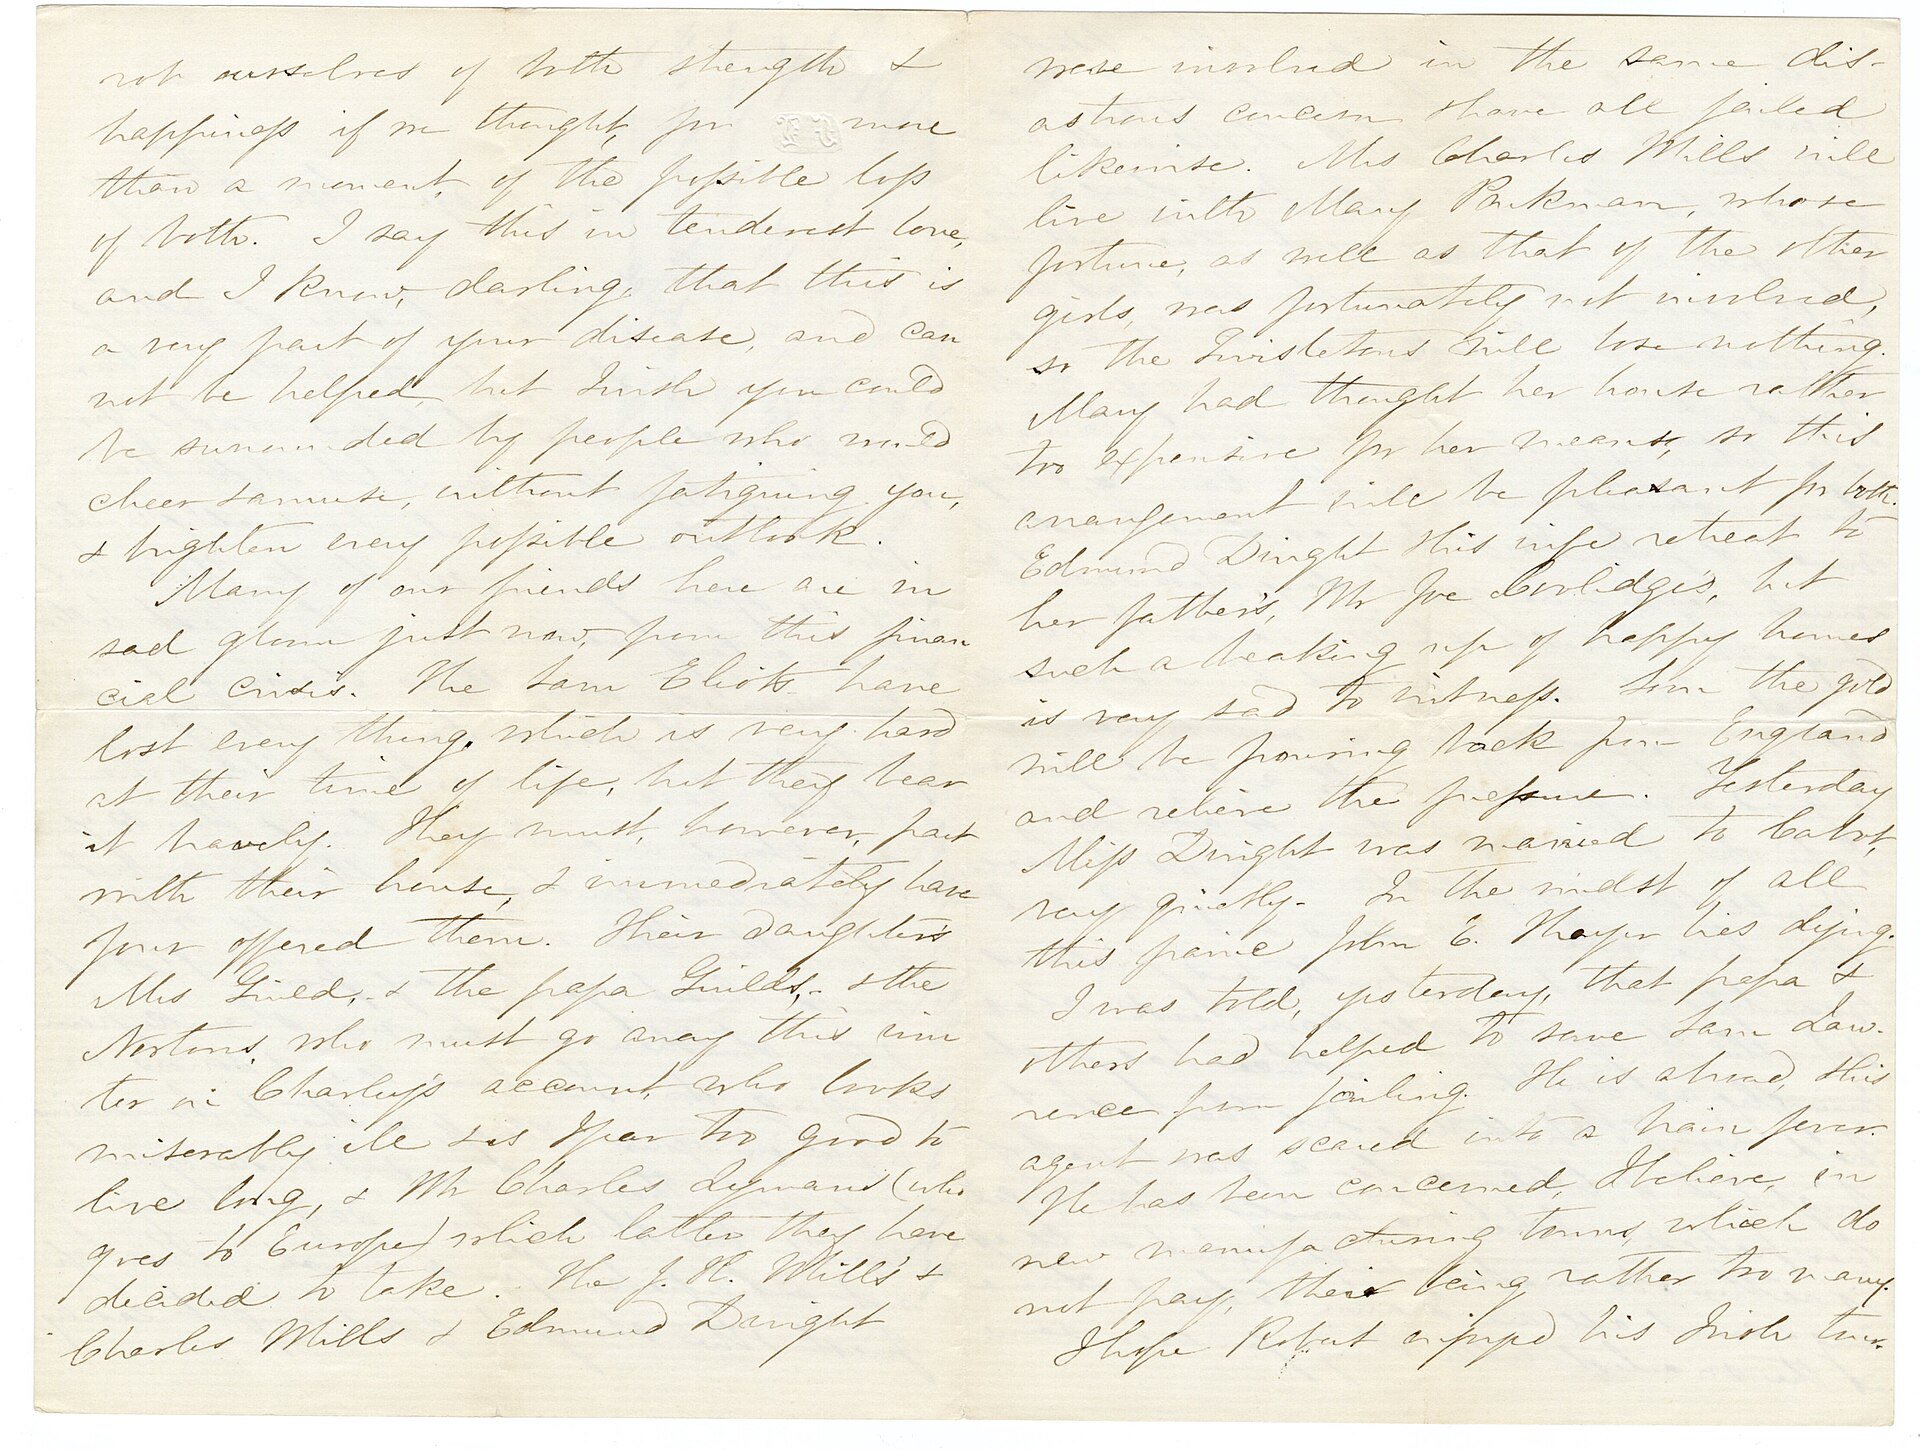 rob ourselves of both strength &
happiness if we thought, for more
than a moment, of the possible loss
of both. I say this in tenderest love,
and I know, darling, that this is
a very part of your disease, and can
not be helped, but I wish you could
be surrounded by people who would
cheer & amuse, without fatiguing you,
& brighten every possible outlook.
Many of our friends here are in
sad gloom just now, from this finan
cial crisis. The Sam Eliots have
lost every thing, which is very hard
at their time of life, but they bear
it bravely. They must, however, part
with their house, & immediately have
four offered them. Their daughter's
Mrs Guild, - & the papa Guilds, - & the
Nortons, who must go away this win
ter on Charley's account, who looks
miserably ill & is I fear too good to
live long, & Mr Charles Lymans (who
goes to Europe) which latter they have
decided to take. The J. K. Mills's &
Charles Mills & Edmund Dwight
were involved in the same dis-
astrous concern & have all failed
likewise. Mrs Charles Mills will
live with Mary Parkman, whose
fortune, as well as that of the other
girls, was fortunately not involved,
so the Twisletons will lose nothing.
Mary had thought her house rather
too expensive for her means, so this
arrangement will be pleasant for both.
Edmund Dwight & his wife retreat to
her father's, Mr Joe Coolidge's, but
such a breaking up of happy homes
is very sad to witness. Soon the gold
will be pouring back from England
and relieve the pressure. Yesterday
Miss Dwight was married to Cabot,
very quietly. In the midst of all
this panic John E. Thayer lies dying.
I was told, yesterday, that papa &
others had helped to save Sam Law-
rence from failing. He is abroad, & his
agent was scared into a brain fever.
He has been concerned, I believe, in
new manufacturing towns, which do
not pay, their being rather too many.
I hope Robert enjoyed his Irish tour.